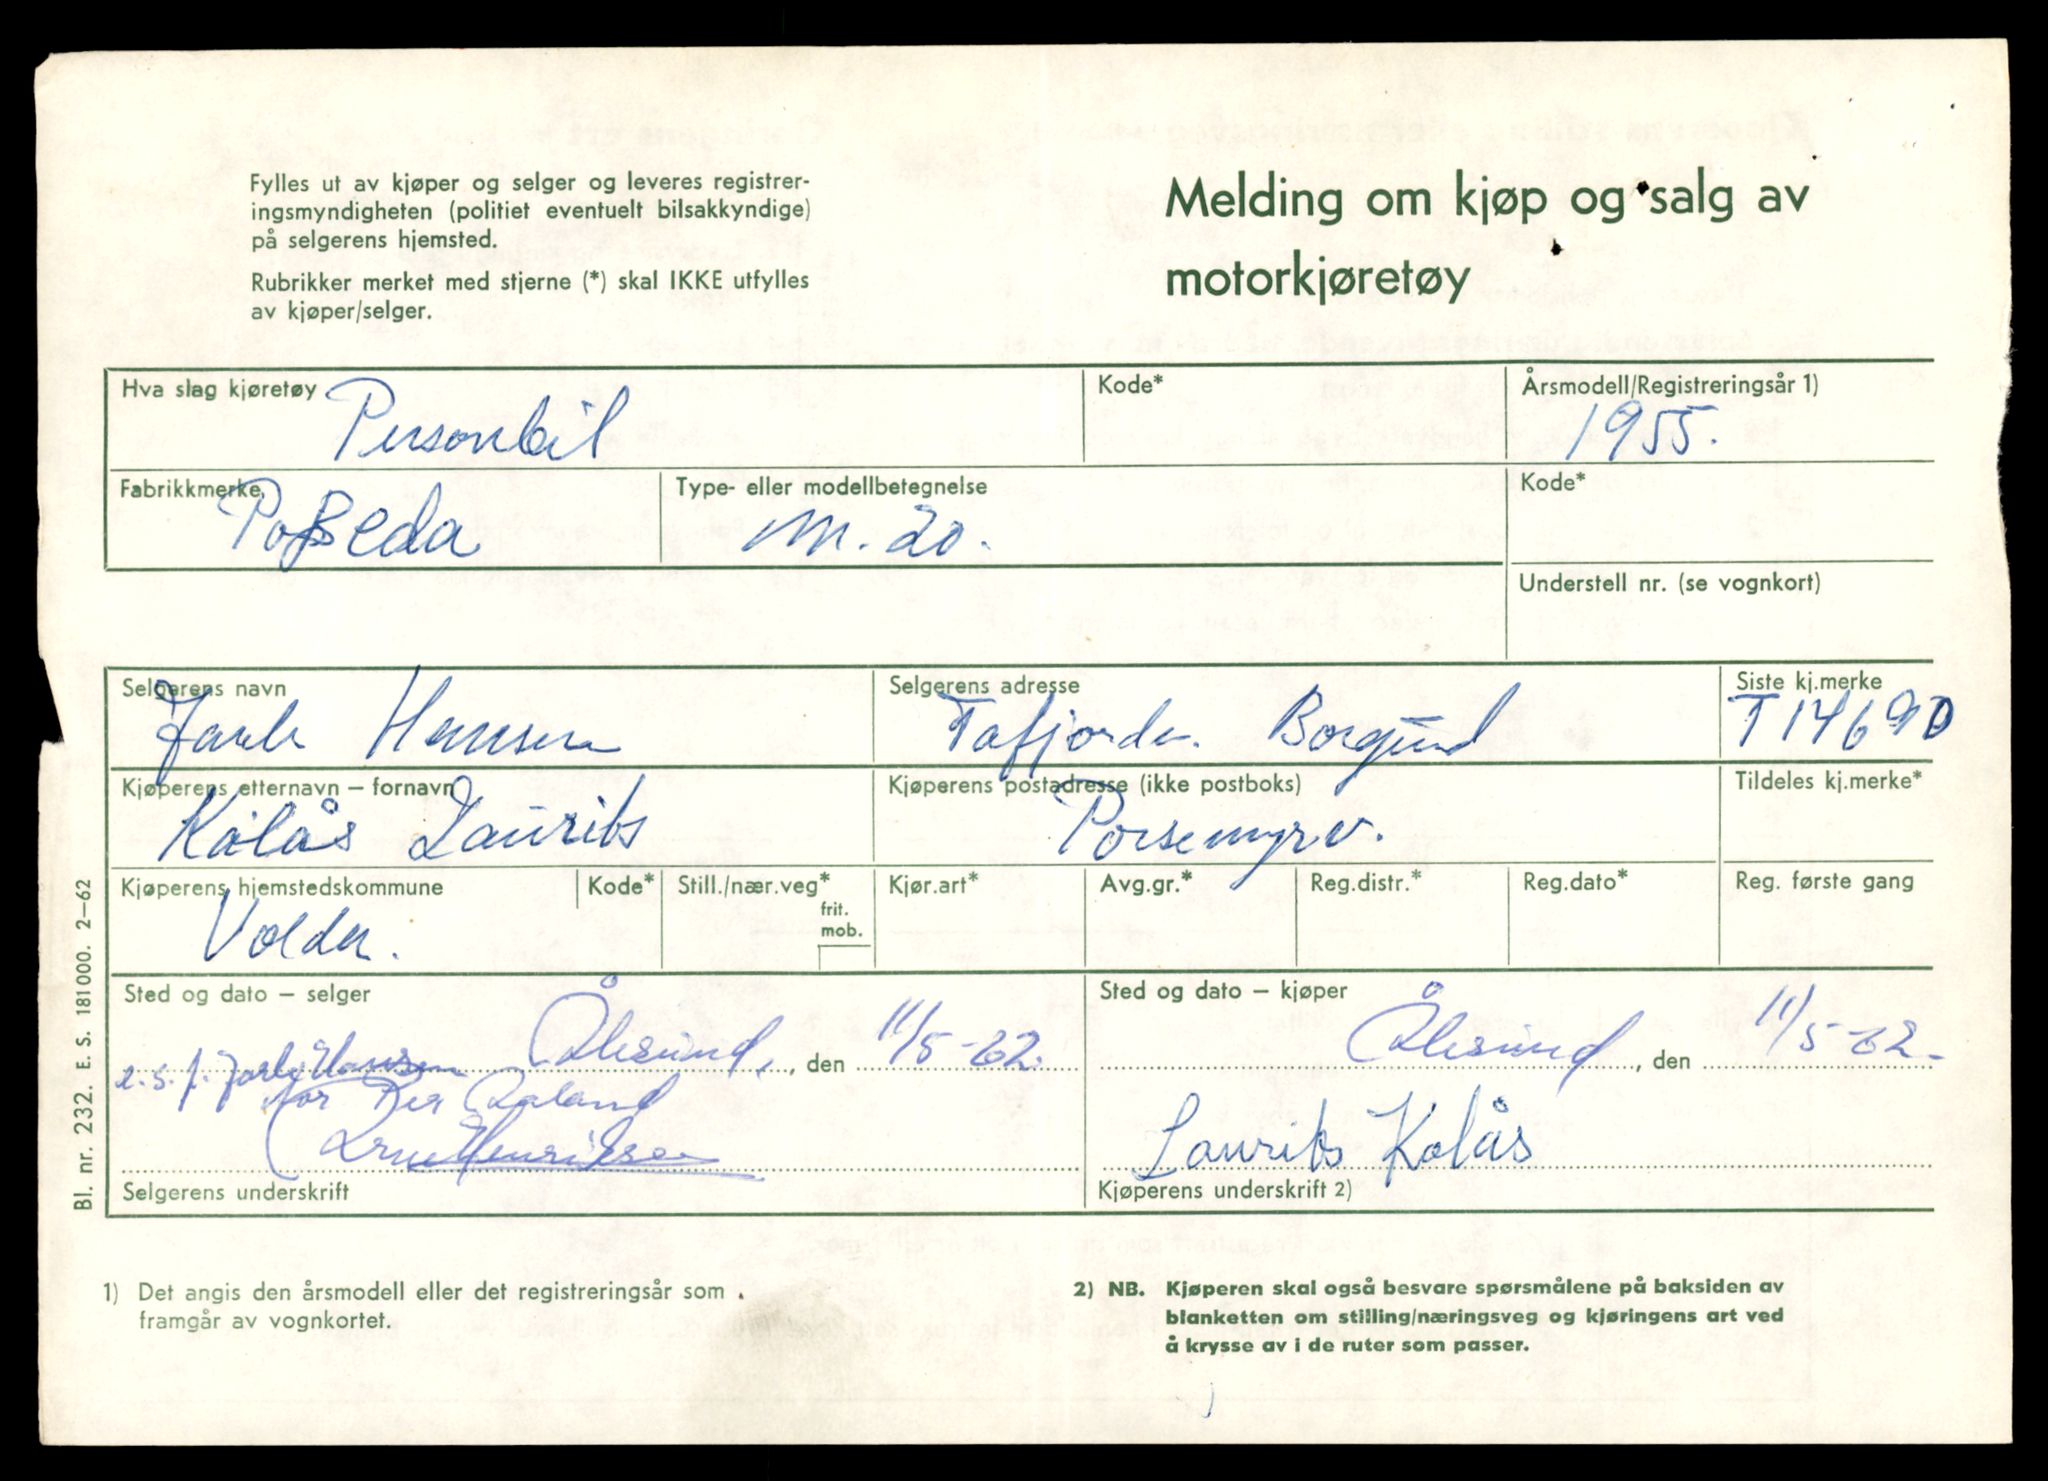 Fylles ut av kjøper og selger og leveres registrer-
ingsmyndigheten (politiet eventuelt bilsakkyndige)
på selgerens hjemsted.
Rubrikker merket med stjerne (*) skal IKKE utfylles
av kjøper/selger.
Melding om kjøp og salg av
motorkjøretøy
Hva slag kjøretøy
Personbil
Kode*
Årsmodell/Registreringsår 1)
1955.
Fabrikkmerke
Type- eller modellbetegnelse
M. 20.
Kode*
Understell nr. (se vognkort)
Selgerens navn
Jarle Hansen
Selgerens adresse
Tafjorden Borgund
Siste kj.merke
T 14690
Kjøperens etternavn – fornavn
Kolås Laurits
Kjøperens postadresse (ikke postboks)
Porsemyrv.
Tildeles kj.merke*
Kjøperens hjemstedskommune
Volda.
Kode*
Still./nær.veg*
frit.
mob.
Kjør.art*
Avg.gr.*
Reg.distr.*
Reg.dato*
Reg. første gang
Sted og dato – selger
Ålesund, den 11/5-62.
Jarle Hansen
for Per Aaland
Arne Henriksen
Selgerens underskrift
Sted og dato – kjøper
Ålesund, den 11/5-62.
Laurits Kolås
Kjøperens underskrift 2)
Bl. nr. 232. E. S. 181000. 2–62
1) Det angis den årsmodell eller det registreringsår som
framgår av vognkortet.
2) NB. Kjøperen skal også besvare spørsmålene på baksiden av
blanketten om stilling/næringsveg og kjøringens art ved
å krysse av i de ruter som passer.